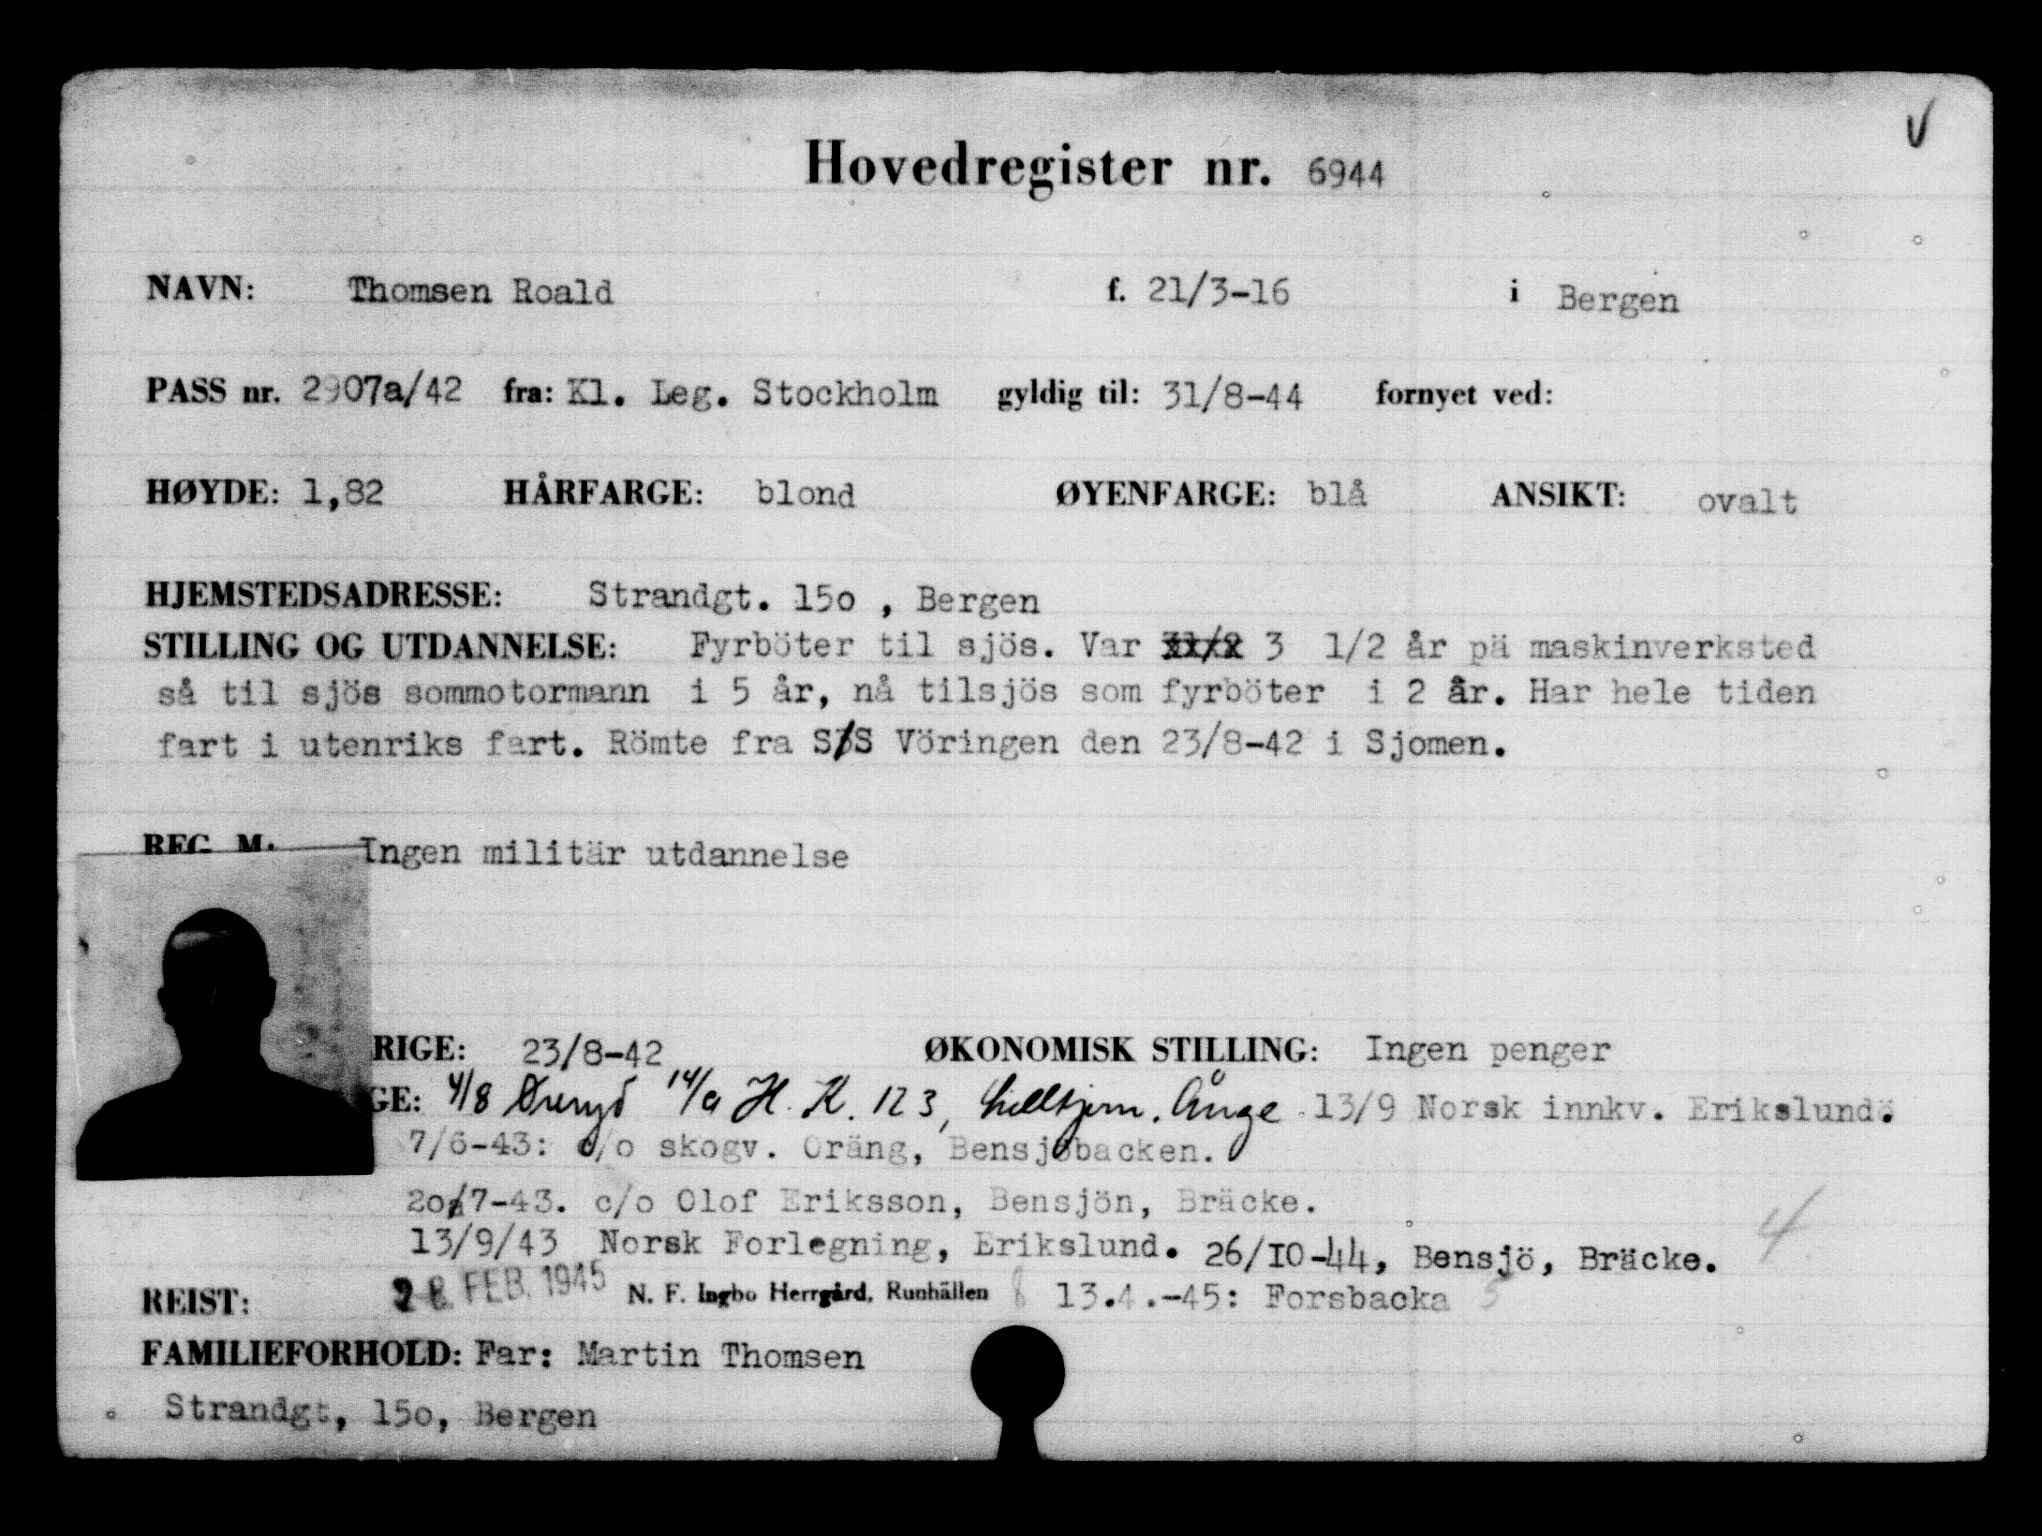 V
Hovedregister nr. 6944
NAVN: Thomsen Roald f. 21/3-16 i Bergen
PASS nr. 2907a/42 fra: Kl. Leg. Stockholm gyldig til: 31/8-44 fornyet ved:
HØYDE: 1,82 HÅRFARGE: blond ØYENFARGE: blå ANSIKT: ovalt
HJEMSTEDSADRESSE: Strandgt. 15o , Bergen
STILLING OG UTDANNELSE: Fyrböter til sjös. Var 3 1/2 år pä maskinverksted
så til sjös sommotormann i 5 år, nå tilsjös som fyrböter i 2 år. Har hele tiden
fart i utenriks fart. Römte fra S/S Vöringen den 23/8-42 i Sjomen.
REG. M: Ingen militär utdannelse
RIGE: 23/8-42 ØKONOMISK STILLING: Ingen penger
GE: 4/8 Öreryd 14/9 H. K. 123, Lilltjern. Ånge 13/9 Norsk innkv. Erikslund.
7/6-43: c/o skogv. Oräng, Bensjöbacken.
20/7-43. c/o Olof Eriksson, Bensjön, Bräcke.
13/9/43 Norsk Forlegning, Erikslund. 26/10-44, Bensjö, Bräcke. 4
REIST: 28. FEB. 1945 N. F. Ingbo Herrgård, Runhällen 13.4.-45: Forsbacka 5
FAMILIEFORHOLD: Far: Martin Thomsen
Strandgt, 15o, Bergen